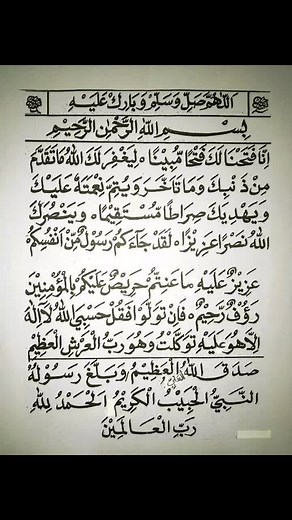 اَللّٰهُمَّ صَلِّ وَسَلِّمْ وَبَارِكْ عَلَيْهِ
بِسْمِ اللهِ الرَّحْمٰنِ الرَّحِيْمِ
اِنَّا فَتَحْنَا لَكَ فَتْحًا مُّبِيْنًا ۞ لِيَغْفِرَ لَكَ اللهُ مَا تَقَدَّمَ
مِنْ ذَنْبِكَ وَمَا تَأَخَّرَ وَيُتِمَّ نِعْمَتَهُ عَلَيْكَ
وَيَهْدِيَكَ صِرَاطًا مُّسْتَقِيْمًا ۞ وَيَنْصُرَكَ
اللهُ نَصْرًا عَزِيْزًا ۞ لَقَدْ جَاءَكُمْ رَسُوْلٌ مِّنْ اَنْفُسِكُمْ
عَزِيْزٌ عَلَيْهِ مَا عَنِتُّمْ حَرِيْصٌ عَلَيْكُمْ بِالْمُؤْمِنِيْنَ
رَؤُوْفٌ رَّحِيْمٌ ۞ فَاِنْ تَوَلَّوْا فَقُلْ حَسْبِيَ اللهُ لَا اِلٰهَ
اِلَّا هُوَ عَلَيْهِ تَوَكَّلْتُ وَهُوَ رَبُّ الْعَرْشِ الْعَظِيْمِ
صَدَقَ اللهُ الْعَظِيْمُ وَبَلَّغَ رَسُوْلُهُ
النَّبِيُّ الْحَبِيْبُ الْكَرِيْمُ اَلْحَمْدُ لِلّٰهِ
رَبِّ الْعَالَمِيْنَ